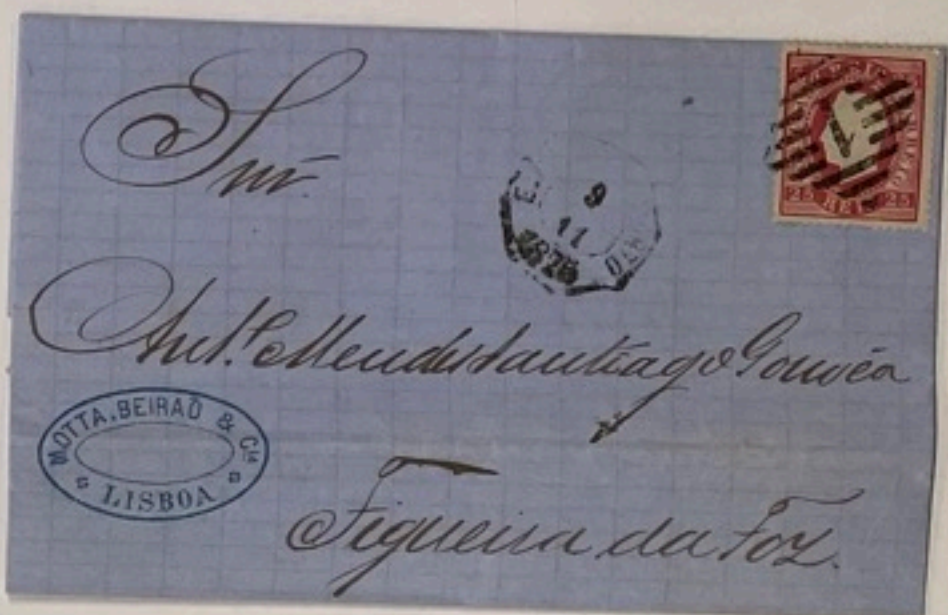 Snr.
9
11
1876
1
25 REIS 25
Ant.º Mendes Santiago Gouvêa
MOTTA, BEIRAÕ & Cia
LISBOA
Figueira da Foz.